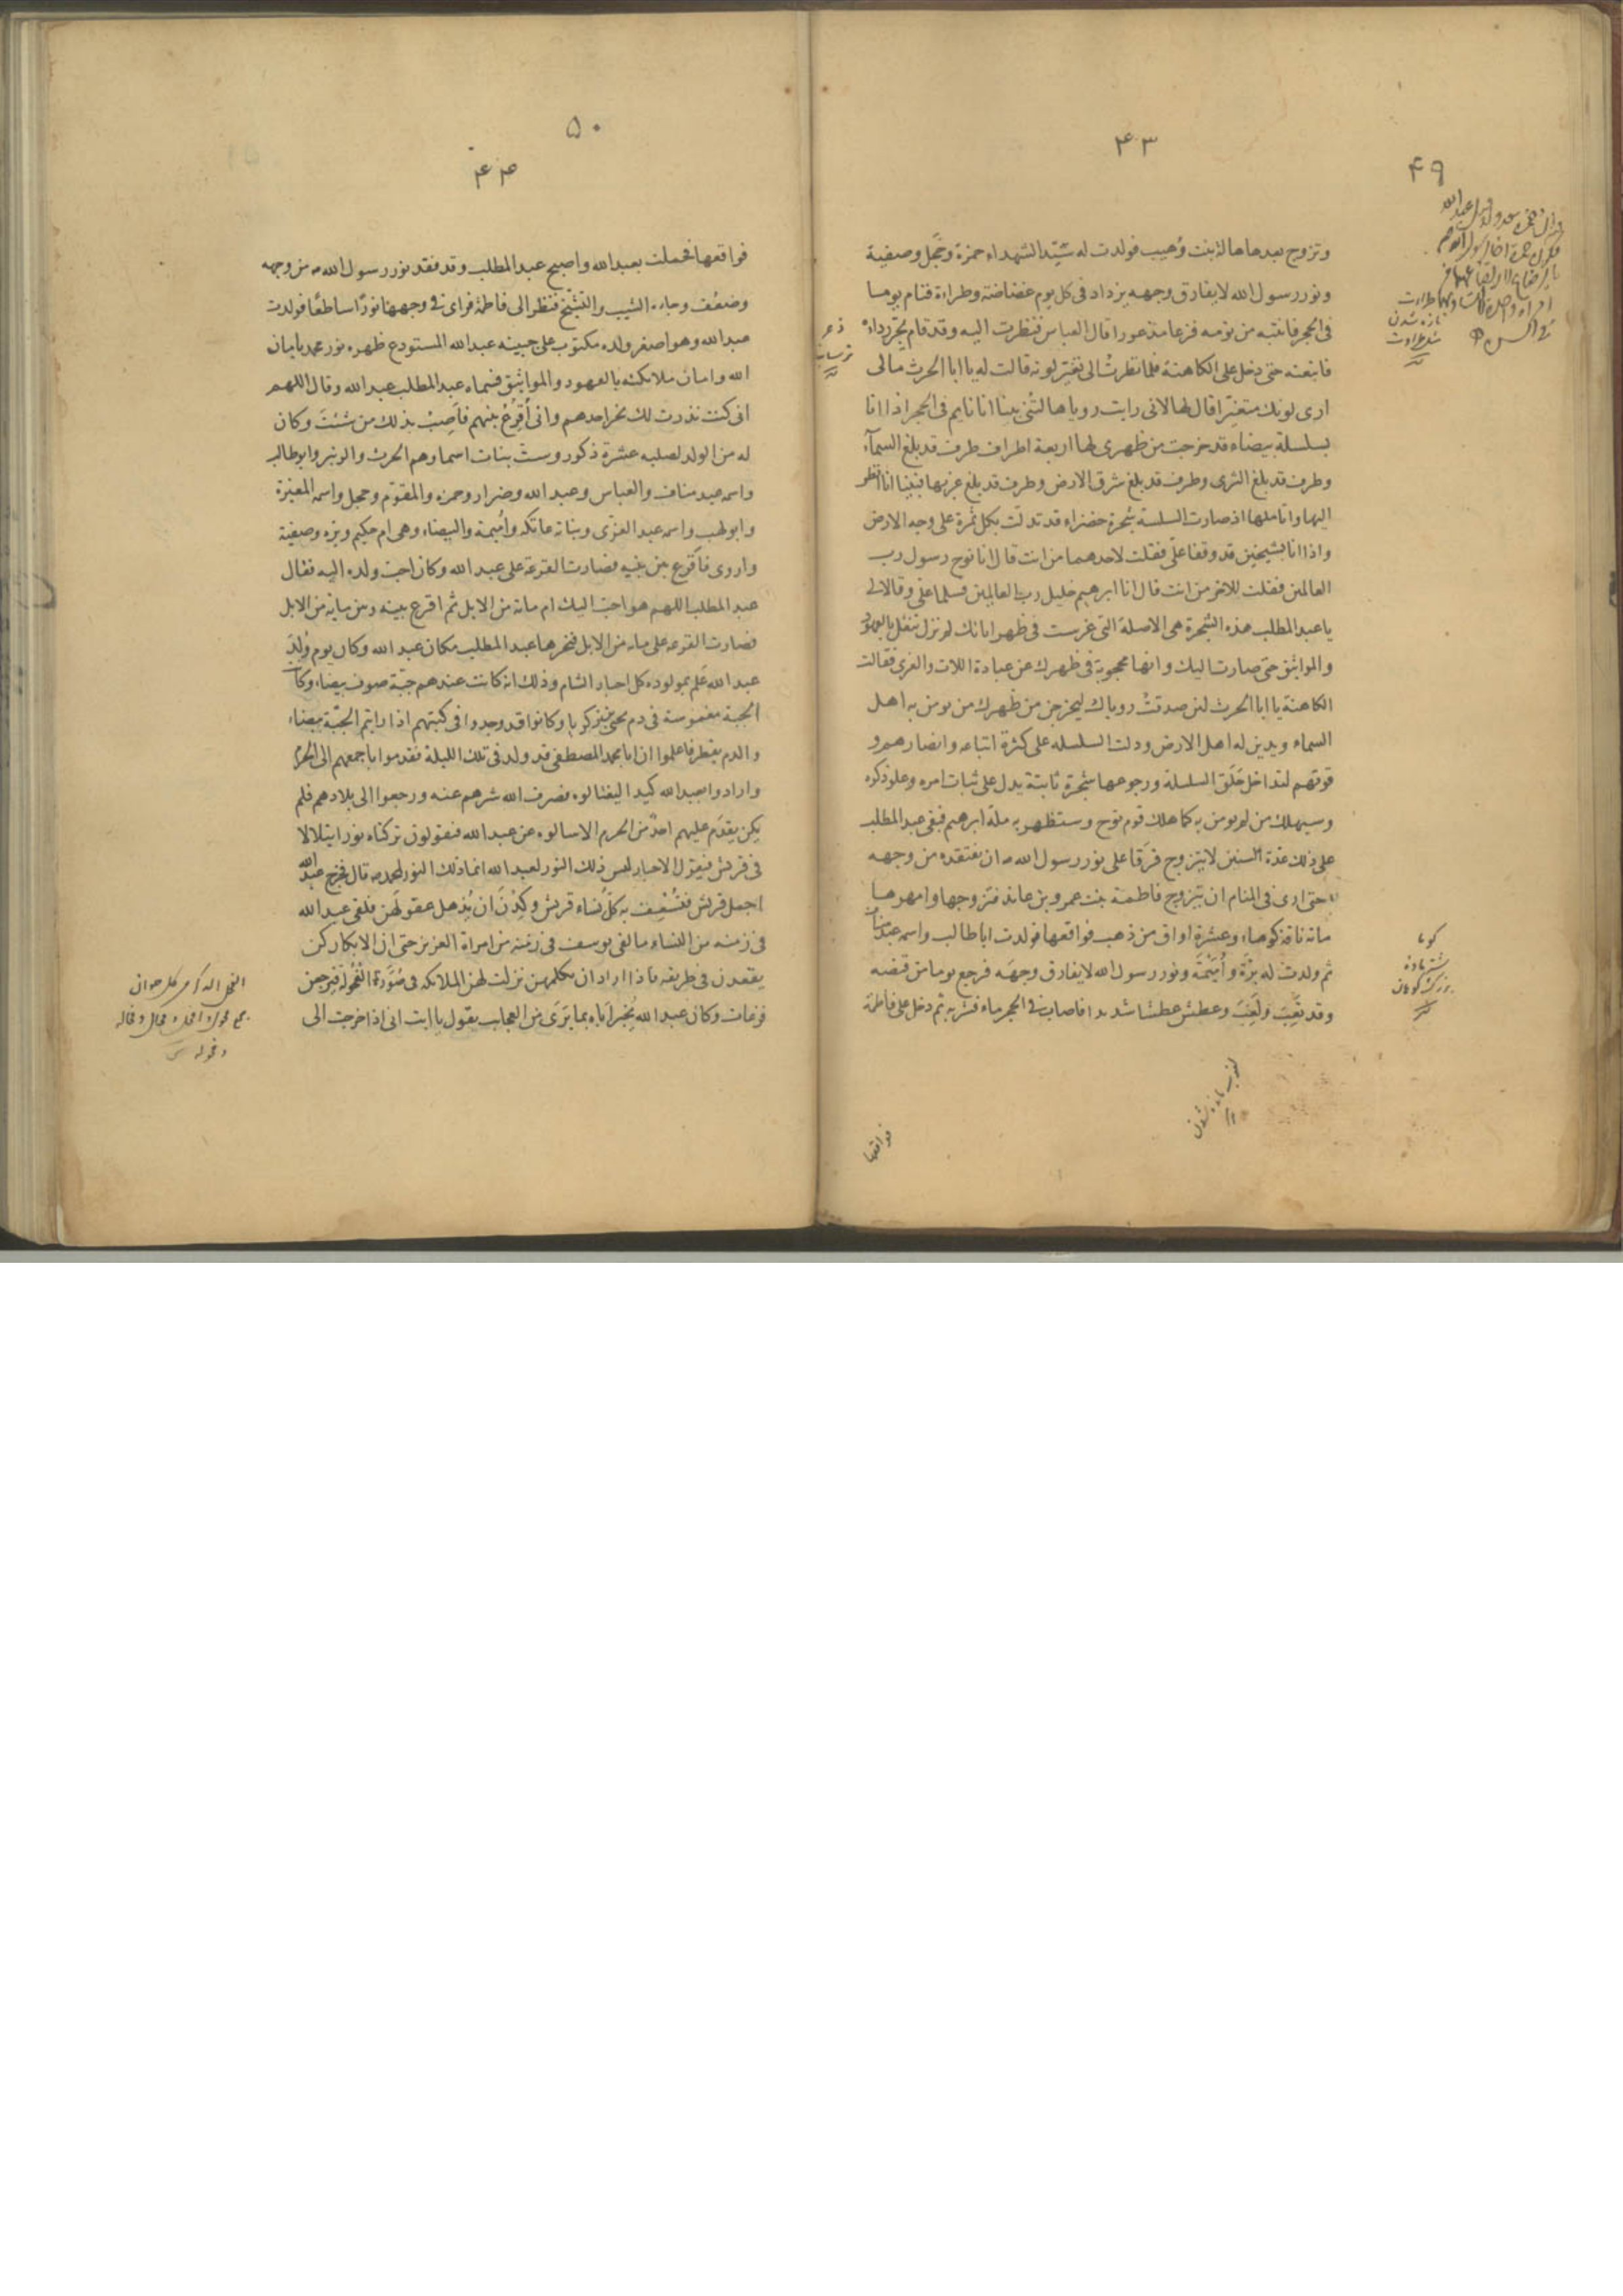 ۴۹
۴۳
وتزوج بعدها هالة بنت وُهيب فولدت له سيّد الشهداء حمزة وحَجَل وصفية
ونور رسول الله لا يفارق وجهه يزداد فى كل يوم غضاضة وطراءة فنام يوما
فى الحجر فانتبه من نومه فزعا مذعورا قال العباس فنظرت اليه وقد قام يجرّ رداءه
فاتبعته حتى دخل على الكاهنة فلما نظرت الى تغيّر لونه قالت له يا ابا الحرث مالى
ارى لونك متغيّرا قال لها لانى رايت رويا هالتنى بينا انا نايم فى الحجر اذا انا
بسلسلة بيضاء قد خرجت من ظهرى لها اربعة اطراف طرف قد بلغ السمآء
وطرف قد بلغ الثرى وطرف قد بلغ شرق الارض وطرف قد بلغ غربها فبينا انا انظر
اليها واتاملها اذ صارت السلسة شجرة خضراء قد تدلّت بكل ثمرة على وجه الارض
واذا انا بشيخين قد وقفا علىّ فقلت لاحدهما من انت قال انا نوح رسول رب
العالمين فقلت للاخر من انت قال انا ابرهيم خليل رب العالمين فسلما علىّ وقالا لى
يا عبد المطلب هذه الشجرة هى الاصلة التى غرست فى ظهر ابائك لم تزل تنقل بالعهود
والمواثيق حتى صارت اليك وانها محجوبة فى ظهرك عن عبادة اللات والعزى فقالت
الكاهنة يا ابا الحرث لئن صدقت روياك ليخرجن من ظهرك من يومن به اهل
السماء ويدين له اهل الارض ودلت السلسله على كثرة اتباعه وانصارهم و
قوتهم لتداخل حَلَق السلسلة ورجوعها شجرة ثابتة يدل على ثبات امره وعلو ذكره
وسيهلك من لم يومن به كما هلك قوم نوح وستظهر به ملة ابرهيم فبقى عبد المطلب
على ذلك عدة السنين لا يتزوج فرَقا على نور رسول الله ص ان يفتقده من وجهه
حتى ارى فى المنام ان يتزوج فاطمة بنت عمرو بن عائذ فتزوجها وامهرها
مائة ناقة كوماء وعشرة اواق من ذهب فواقعها فولدت اباطالب واسمه عبدمناف
ثم ولدت له برّة وأُمَيْمَة ونور رسول الله لا يفارق وجهَه فرجع يوما من قنصه
وقد تَعِبَ ولَغِبَ وعطش عطشا شديدا فاصاب فى الحجر ماء فشربه ثم دخل على فاطمة
ذعر
ترسانيدن
كوما
شتر ماده
بزرگ كوهان
فواقعها
۵۰
۴۴
فواقعها فحملت بعبدالله واصبح عبدالمطلب وقد فقد نور رسول الله ص من وجهه
وضعُف وجاءه الشيب والتشيّخ فنظر الى فاطمة فراى فى وجهها نورًا ساطعًا فولدت
عبدالله وهو اصغر ولده مكتوب على جبينه عبدالله المستودع ظهره نور محمد بايمان
الله وامان ملائكته بالعهود والمواثيق فسماه عبدالمطلب عبدالله وقال اللهم
انى كنت نذرت لك نحر احدهم وانى أُقْرِعُ بينهم فاَصِبْ بذلك من شئتَ وكان
له من الولد لصلبه عشرة ذكور وستّ بنات اسماوهم الحرث والزبير وابوطالب
واسمه عبدمناف والعباس وعبدالله وضرار وحمزه والمقوّم وحجل واسمه المغيرة
وابولهب واسمه عبدالعزّى وبناته عاتكه واُميمة والبيضاء وهى ام حكيم وبرّه وصفية
واروى فاَقرع بين بنيه فصارت القرعة على عبدالله وكان احبّ ولده اليه فقال
عبدالمطلب اللهم هو احبّ اليك ام مائة من الابل ثم اقرع بينه وبين مائه من الابل
فصارت القرعه على مائه من الابل فنحرها عبدالمطلب مكان عبدالله وكان يوم وُلِدَ
عبدالله عَلم بمولوده كل احبار الشام وذلك انه كانت عندهم جبّة صوف بيضاء وكانت
الجبة مغموسة فى دم يحيى بن زكريا وكانوا قد وجدوا فى كتبهم اذا رايتم الجبّة بيضاء
والدم يقطر فاعلموا ان ابا محمد المصطفى قد ولد فى تلك الليلة فقدموا باجمعهم الى الحرم
وارادوا بعبدالله كيدا ليغتالوه فصرف الله شرهم عنه ورجعوا الى بلادهم فلم
يكن يقدَم عليهم احدٌ من الحرم الا سالوه عن عبدالله فيقولون تركناه نورا يتلالا
فى قريش فيقول الاحبار ليس ذلك النور لعبدالله انما ذلك النور لمحمد ص قال فخرج عبدالله
اجمل قريش فشُغِف به كلّ نساء قريش وكِدْنَ ان يُذهل عقولَهن فلقى عبدالله
فى زمنه من النساء ما لقى يوسف فى زمنه من امراة العزيز حتى ان الابكار كن
يقعدن فى طريقه فاذا اراد ان يكلمهن نزلت لهن الملائكه فى صُوَرة الفُحُولة فيرجعن
فزعات وكان عبدالله يُخبر اَباه بما يَرَى من العجايب يقول يا ابت انى اذا خرجت الى